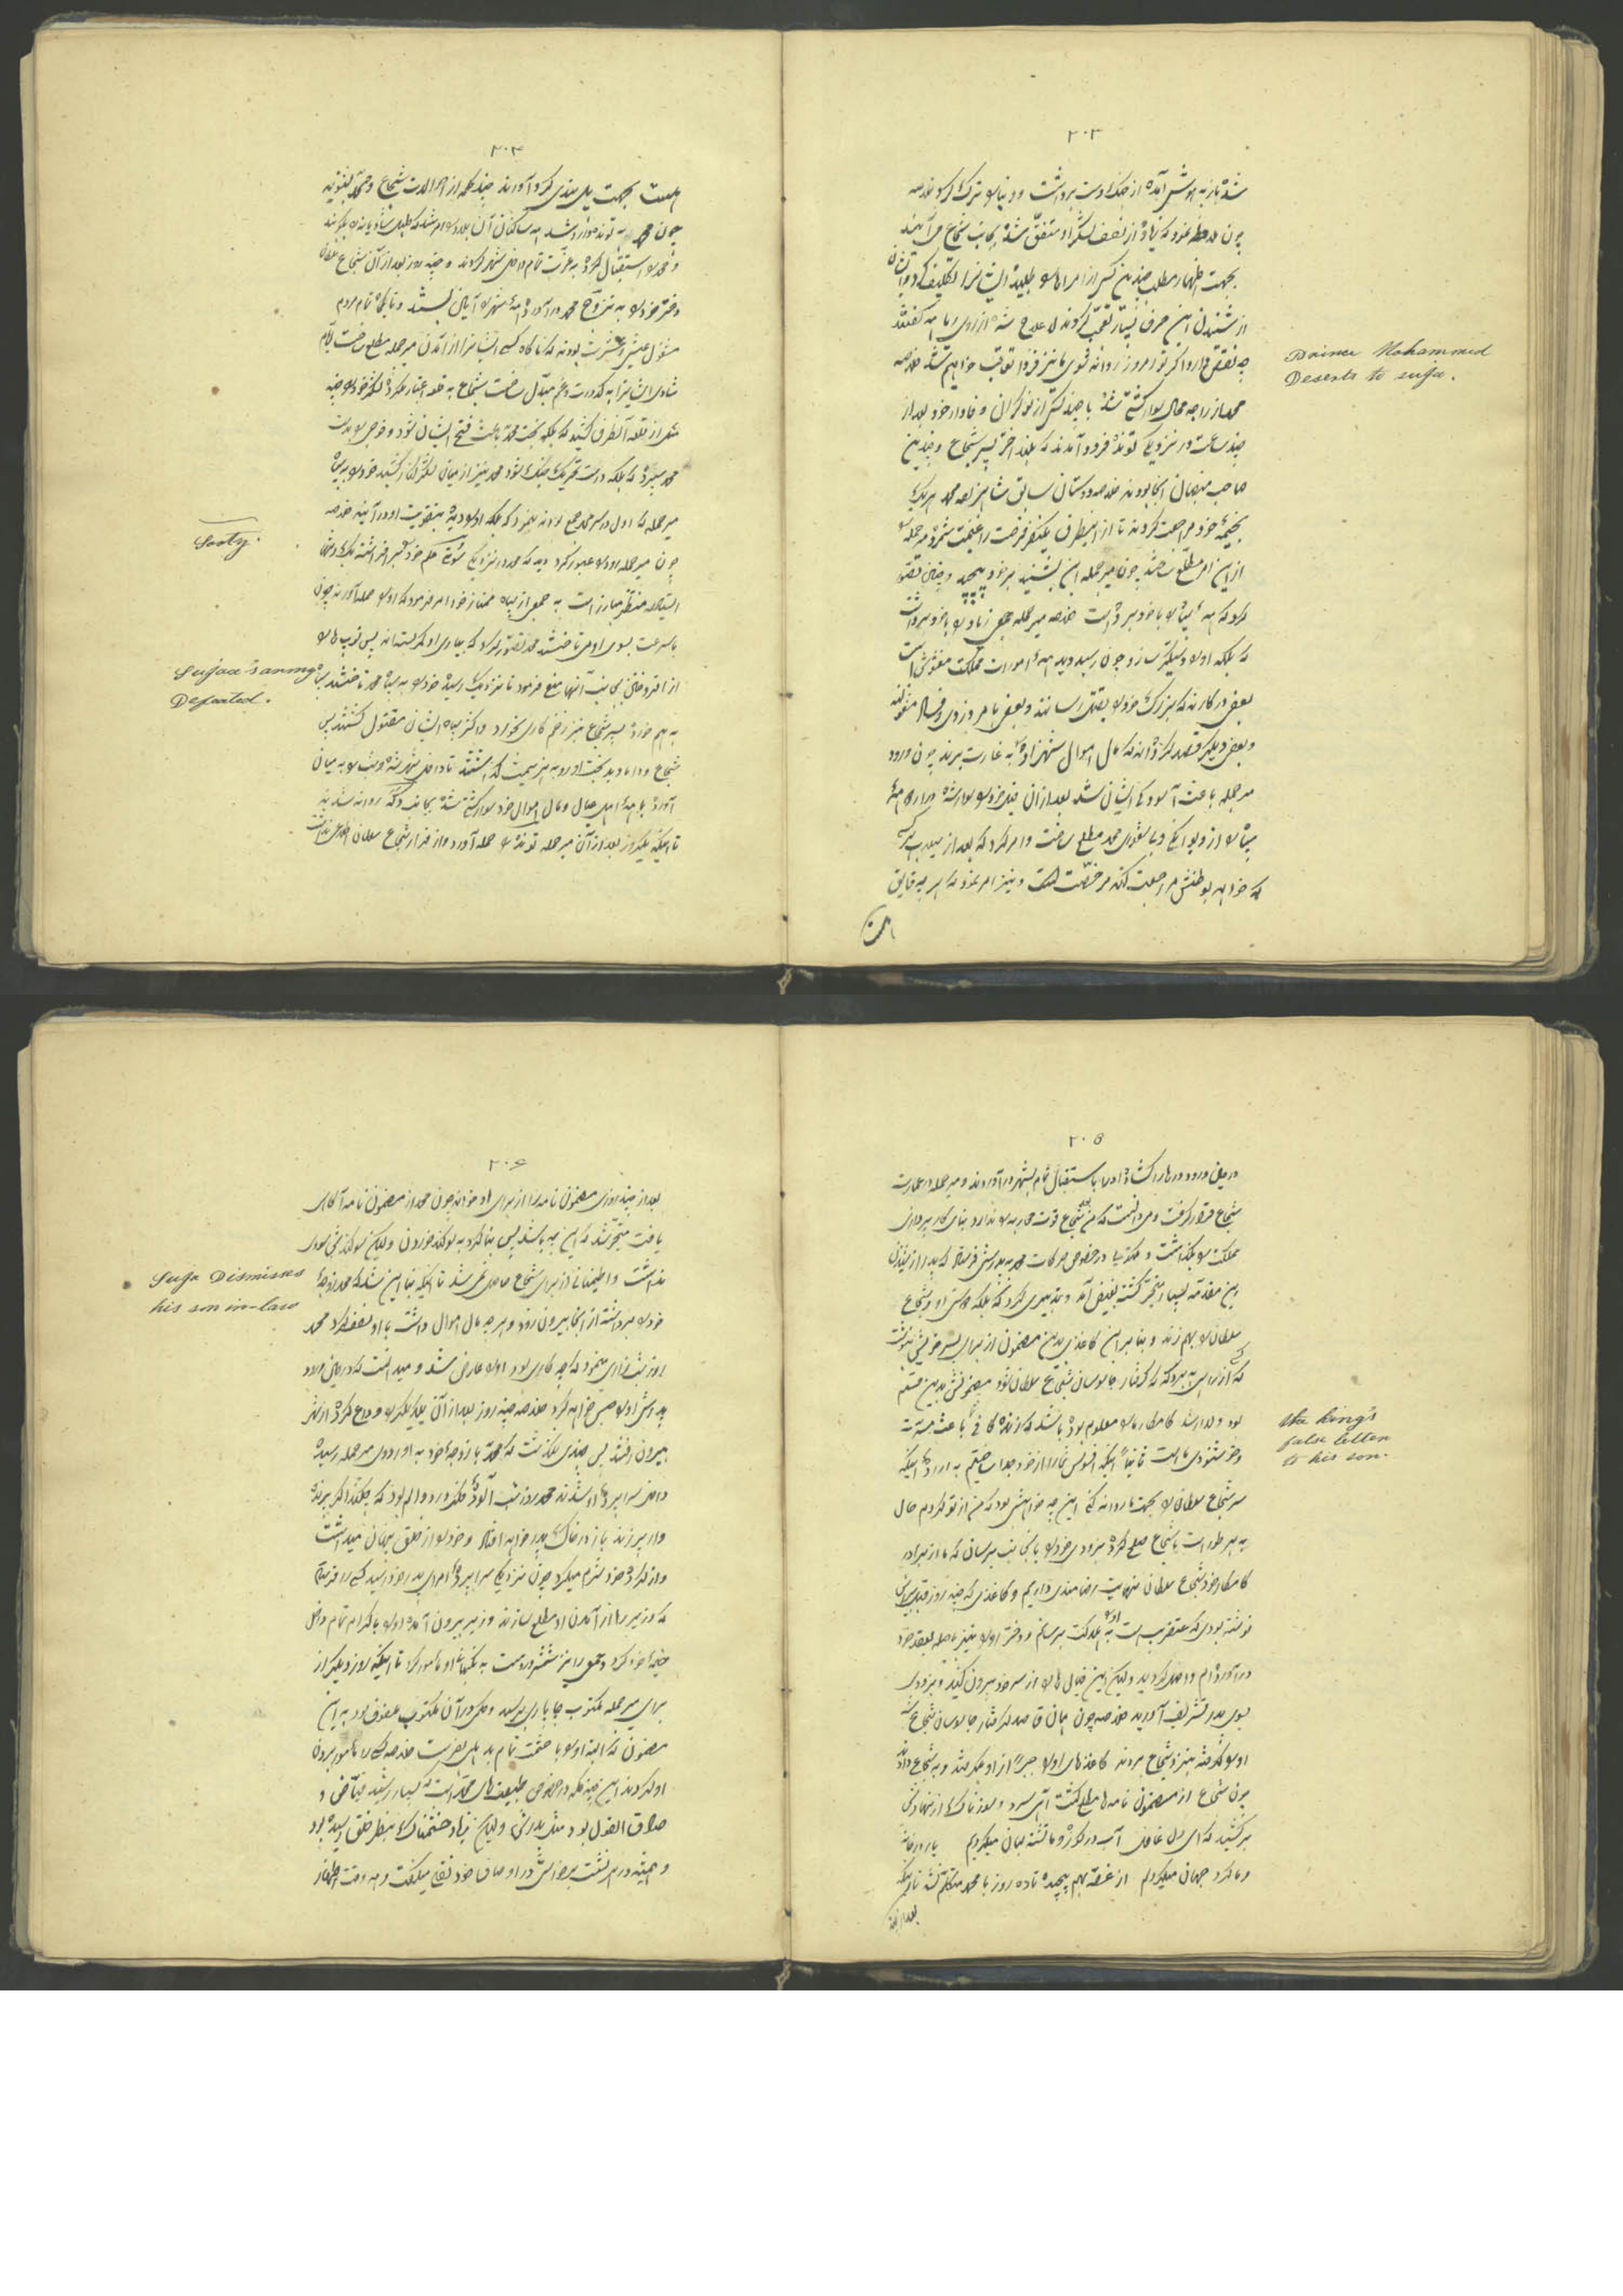 ۲۰۳
شده باز به هوش آمده از جنگ دست برداشت و دنیا را ترک کرد
چون ملاحظه نمود که زیاده از نصف لشکر او متفق شده بجانب شجاع می آیند
بجهت اظهار مطلب چندین کس از امراها را طلبیده ایشانرا تکلیف کرد
از شنیدن این حرف بسیار تعجب کردند لاعلاج شده از روی ریا همه گفتند
چه نقص دارد اگر تو امروز روانه شوی ما نیز فردا تعاقب خواهیم شد خلاصه
محمد از راجه محال سوار کشتی شده با چند کس از نوکران وفادار خود بعد از
چند ساعت در نزدیکی تونده فرود آمدند که بلند اختر پسر شجاع و چندین
صاحب منصبان آنجا بودند خلاصه دوستان سابق شاهزاده محمد هر یک
بخیمه خود مراجعت کردند تا از اینطرف یکنفر فرصت را غنیمت شمرده میر جمله را
از این امر مطلع ساخت چون میر جمله این بشنید بر خود پیچید و چنین تصور
کرد که همه سپاه را با خود برده است خلاصه میر جمله جمعی زیاد را با خود برداشت
که بلکه او را دستگیر سازد چون رسید دید همه امورات مملکت مغشوش است
بعضی در کارند که بزرگ خود را بقتل رسانند و بعضی بامر دزدی و فساد مشغولند
و بعضی دیگر قصد کرده اند که مال اموال شهزاده را به غارت برند چون ورود
میر جمله باعث آسودگی ایشان شد بعد از آن خود سوار شده همه
سپاه را از دیوانگی و بیشعوری محمد مطلع ساخت و امر کرد که بعد از این هر کس
که خواهد بوطنش مراجعت کند مرخص است و نیز امر نمود که هر چه قایق
است
Prince Mohammed
Deserts to suja.
۲۰۴
است بجهت پل بندی گرد آورند چند کلمه از احوالات شجاع و محمد بشنوید
چون محمد به تونده وارد شد همه ساکنان آن بلد را امر شد که طبل شادیانه را بکوبند
و محمد را استقبال کرده به عزت تمام داخل شهر کردند و چند روز بعد از آن شجاع سلطان
دختر خود را به تزویج محمد در آورد همه شهر را آیین بستند و تا یکماه تمام مردم
مشغول عیش و عشرت بودند که ناگاه کسی ایشانرا از آمدن میر جمله مطلع ساخت ایام
شادی ایشانرا به کدورت و غم مبدل ساخت شجاع به قلعه اعتبار نکرده لشکر خود را چند
میل از قلعه آنطرف کشید که بلکه بخت محمد باعث فتح ایشان شود و فوجی را بدست
محمد سپرده که بلکه دست تحریک جنگ شود محمد نیز از میان لشکر کنار کشید خود را به سپاه
میر جمله که اول در سر محمد جمع بودند بنمود که بلکه او را دیده بتقویت او درآیند خلاصه
چون میر جمله رود را عبور کرد دید که محمد در نزدیکی تونده علم خود را برافراشته یکه و تنها
ایستاده منتظر مبارز است به جمعی از سپاه ممتاز خود امر فرمود که او را حمله آورند چون
بسرعت بسوی او می تاختند محمد تصور کرد که بیاری او کمر بسته اند پس توپ ها را
از افروختن بجانب آنها منع فرمود تا نزدیک رسیده خود را به سپاه محمد تاختند
به هم خورده پسر شجاع نیز زخم کاری بخورد و اکثر سپاه ایشان مقتول گشتند پس
شجاع و داماد بدبخت او رو به هزیمت گذاشتند تا داخل شهر شده و شب را به میان
آورده با همه اهل عیال و مال اموال خود سوار کشتی شده بجانب دکه روانه شدند
تا اینکه یکروز بعد از آن میر جمله تونده را حمله آورد و از فرار شجاع سلطان اطلاع نداشت
Sooty.
Sujaa's army
Defeated.
۲۰۵
در حین ورود در ها را گشاده او را باستقبال تمام بشهر در آوردند و میر جمله در عمارت
شجاع قرار گرفت و می دانست که من بعد شجاع قوت محاربه را ندارد بنای کار پردازی
مملکت را گذاشت و مکتوبها در خصوص حرکات محمد به پدرش فرستاد که پدر از شنیدن
این مقدمه بسیار متحیر گشته بغیض آمد و تدبیری کرد که بلکه میان او و شجاع
سلطان را بهم زند و بنا براین کاغذی بدین مضمون از برای پسر خویش نوشت
که گرفتار جاسوسان شجاع سلطان شود مضمونش بدین قسم
بود ولد ارشد کامکار ما را معلوم بوده باشد که زندگانی باعث مسرت
و خوشنودی ما است ثانیا اینکه افسوس شما را از خود جدا ساختیم به اراده اینکه
سر شجاع سلطان را بجهت ما روانه کنی این چه خواهش بود که من از تو کردم حال
به هر طور است با شجاع صلح کرده بزودی خود را باینجانب برسان که ما از برادر
کامکار خود شجاع سلطان نهایت رضامندی داریم و کاغذی که چند روز قبل برین
نوشته بودی که عنقریب است او را به هلاکت برسانم و دختر او را نیز بحیله بعقد خود
درآورده ام واصل گردید ولیکن این خیال ها را از سر خود بیرون کنید و بزودی
بسوی پدر تشریف آورید خلاصه چون همان قاصد گرفتار جاسوسان شجاع شد
او را گرفته بنزد شجاع بردند کاغذهای او را جبرا از او گرفتند و به شجاع دادند
چون شجاع از مضمون نامه ها مطلع گشت آهی سرد و سوزناک از نهاد دل
برکشید که ای دل غافل آب در کوزه و ما تشنه لبان میگردیم یار در خانه
و ما گرد جهان میگردیم از غصه بهم پیچیده تا ده روز با محمد متکلم نشد تا اینکه
بعد از چند
The king's
false letter
to his son.
۲۰۶
بعد از چند روزی مضمون نامه را از برای او خواند چون محمد از مضمون نامه آگاهی
یافت متحیر شد که این چه باشد پس بنا کرد به سوگند خوردن ولیکن سوگندش سودی
نداشت و اطمینانی از برای شجاع حاصل نمی شد تا اینکه بنا بر این شد که محمد زوجه
خود را برداشته از آنجا بیرون رود و هر چه مال اموال داشت با او نصف کرد محمد
روز و شب زاری مینمود که چه کاری بود او را عارض شد و میدانست که در حین ورود
پدرش او را حبس خواهد کرد خلاصه چند روز بعد از آن یکدیگر را وداع کرده از شهر
بیرون رفتند پس چندی نگذشت که محمد با زوجه خود به اوردوی میر جمله رسیده
داخل سراپرده او شدند محمد روز و شب آلوده فکر و درد و الم بود که چکند اگر برنده
وار پر زند باز در خاک پدر خواهد افتاد و خود را از خلق پنهان میداشت
و از کرده خود شرم میکرد چون نزدیکی سراپرده امرای پدر خود رسید کسی را فرستاد
که وزیر را از آمدن او مطلع سازند وزیر بیرون آمده او را با اکرام تمام داخل
خیمه خود کرد و جمعی را نیز شمشیر در دست به نگهبانی او مأمور کرد تا اینکه روز دیگر از
برای میر جمله مکتوب چاپاری برسید و حکمی در آن مکتوب ملفوف بود به این
مضمون که البته او را با حشمت تمام به دهلی بفرست خلاصه کسی را مأمور بردن
او کردند این چند کلمه در خصوص طبیعت های محمد است که بسیار رشید فیاض و
صادق القول بود مثل پدرش ولیکن زیاد خشمناک بنظر خلق رسیده بود
و همیشه در هر نشست برخواستی در اوصاف خود نطق میگفت و همه وقت اظهار
Suja Dismisses
his son in-law